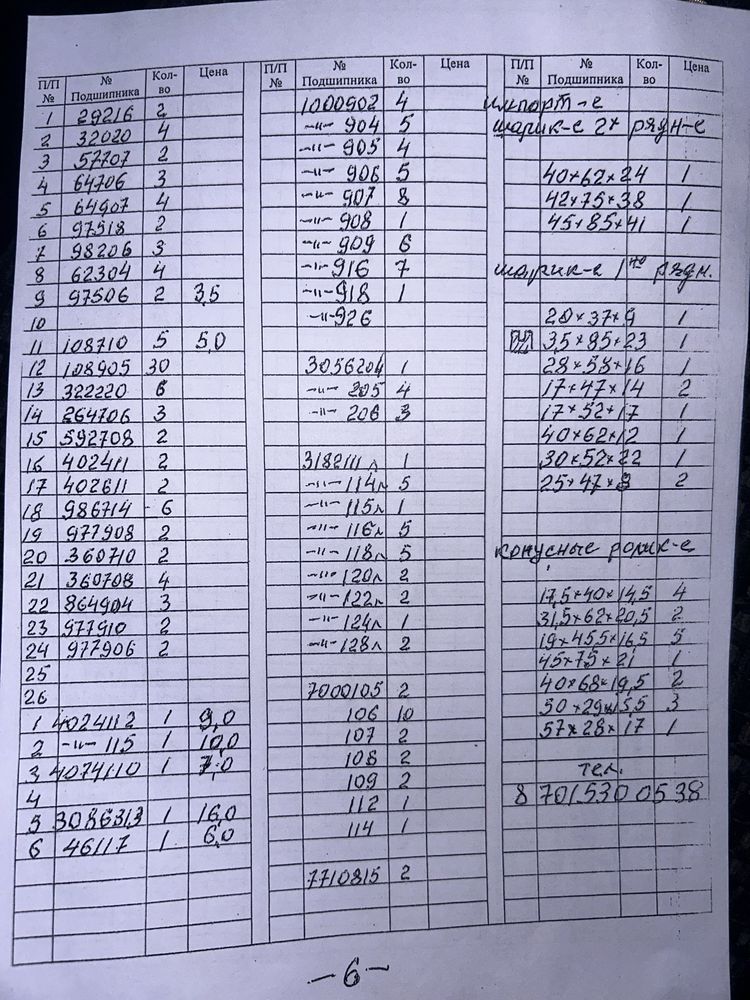 П/П № № Подшипника Кол-во Цена
1 29216 2
2 32020 4
3 57707 2
4 64706 3
5 64907 4
6 97518 2
7 98206 3
8 62304 4
9 97506 2 3,5
10
11 108710 5 5,0
12 108905 30
13 322220 6
14 264706 3
15 592708 2
16 402411 2
17 402611 2
18 986714 - 6
19 977908 2
20 360710 2
21 360708 4
22 864904 3
23 977910 2
24 977906 2
25
26
1 4024112 1 9,0
2 -"- 115 1 10,0
3 4074110 1 7,0
4
5 3086313 1 16,0
6 46117 1 6,0
П/П № № Подшипника Кол-во Цена
1000902 4
-"- 904 5
-"- 905 4
-"- 906 5
-"- 907 8
-"- 908 1
-"- 909 6
-"- 916 7
-"- 918 1
-"- 926
3056204 1
-"- 205 4
-"- 206 3
3182111 л 1
-"- 114л 5
-"- 115л 1
-"- 116л 5
-"- 118л 5
-"- 120л 2
-"- 122л 2
-"- 124л 1
-"- 128л 2
7000105 2
106 10
107 2
108 2
109 2
112 1
114 1
7710815 2
П/П № № Подшипника Кол-во Цена
импорт-е
шарик-е 2х рядн-е
40×62×24 1
42×75×38 1
45×85×41 1
шарик-е 1но рядн.
20×37×9 1
35×85×23 1
28×58×16 1
17×47×14 2
17×52×17 1
40×62×12 1
30×52×22 1
25×47×8 2
конусные ролик-е
17,5×40×14,5 4
31,5×62×20,5 2
19×45,5×16,5 5
45×75×21 1
40×68×19,5 2
50×29×15,5 3
57×28×17 1
тел.
8 701 530 05 38
-6-